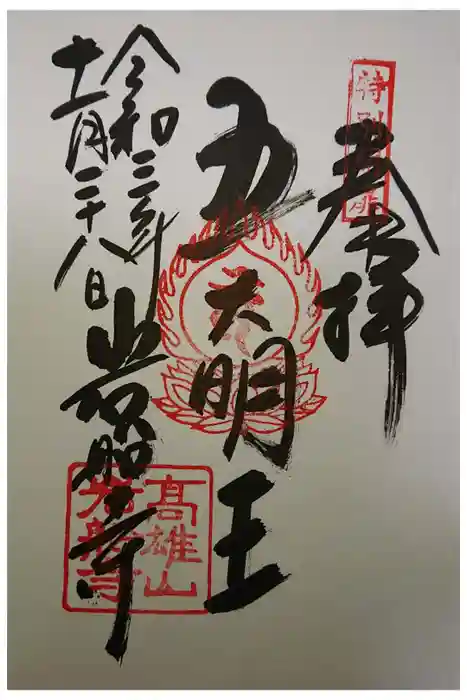 特別拝
奉拝
五大明王
令和三年
十一月二十八日
岩船寺
高雄山
岩船寺